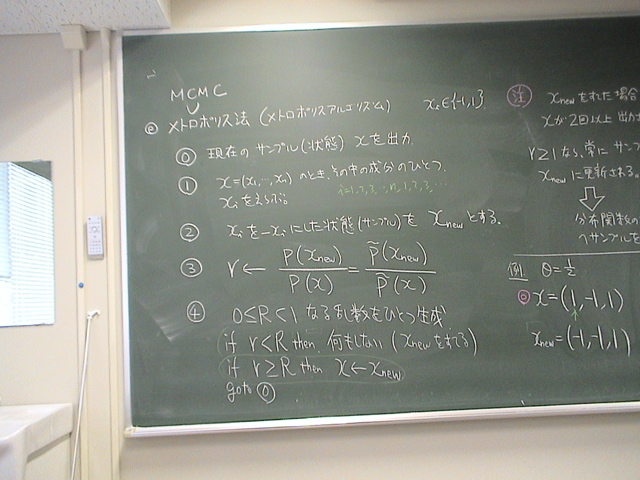 MCMC
メトロポリス法 (メトロポリスアルゴリズム) xᵢ∈{-1,1}
⓪ 現在のサンプル(状態) xを出力
① x=(x₁,…,xₙ) のとき、その中の成分のひとつ
xᵢをえらぶ。 i=1,2,3,…,n,1,2,3,…
② xᵢを-xᵢにした状態(サンプル)を xnewとする。
③ r← P(xnew)/P(x) = P̃(xnew)/P̃(x)
④ 0≤R<1 なる乱数をひとつ生成
if r<R then 何もしない (xnewをすてる)
if r≥R then x←xnew
goto ⓪
注 xnewをすてた場合
xが2回以上出力
r≥1なら、常にサンプ
xnewに更新される。
分布関数の
へサンプルを
例 θ=1/2
⓪ x=(1,-1,1)
xnew=(-1,-1,1)